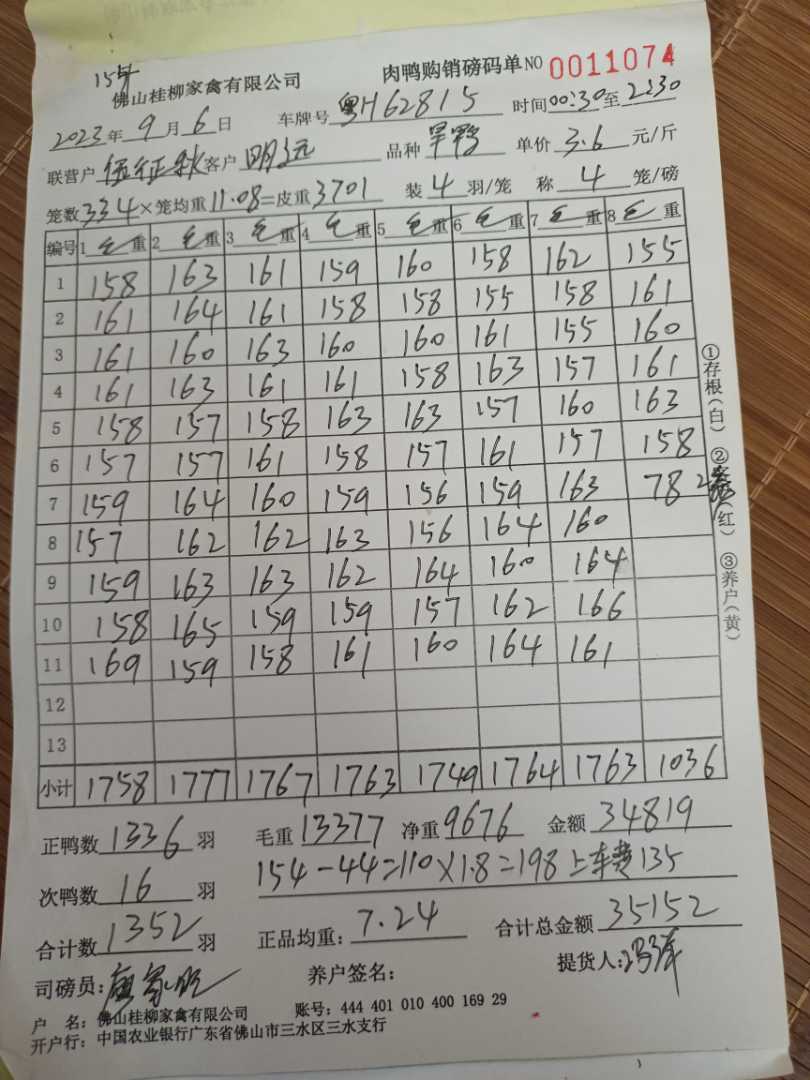 154
佛山桂柳家禽有限公司 肉鸭购销磅码单 NO 0011074
2023年9月6日 车牌号 粤H62815 时间00:30至2:30
联营户 伍征秋 客户 明远 品种 旱鸭 单价 3.6 元/斤
笼数334×笼均重11.08=皮重3701 装4羽/笼 称4笼/磅
编号 1毛重 2毛重 3毛重 4毛重 5毛重 6毛重 7毛重 8毛重
1 158 163 161 159 160 158 162 155
2 161 164 161 158 158 155 158 161
3 161 160 163 160 160 161 155 160
4 161 163 161 161 158 163 157 161
5 158 157 158 163 163 157 160 163
6 157 157 161 158 157 161 157 158
7 159 164 160 159 156 159 163 78 2
8 157 162 162 163 156 164 160
9 159 163 163 162 164 160 164
10 158 165 159 159 157 162 166
11 169 159 158 161 160 164 161
12
13
小计 1758 1777 1767 1763 1749 1764 1763 1036
①存根(白) ②(红) ③养户(黄)
正鸭数1336羽 毛重13377 净重9676 金额34819
次鸭数16羽 154-44=110×1.8=198 上车费135
合计数1352羽 正品均重:7.24 合计总金额35152
司磅员: 养户签名: 提货人:
户 名:佛山桂柳家禽有限公司 账号:444 401 010 400 169 29
开户行:中国农业银行广东省佛山市三水区三水支行